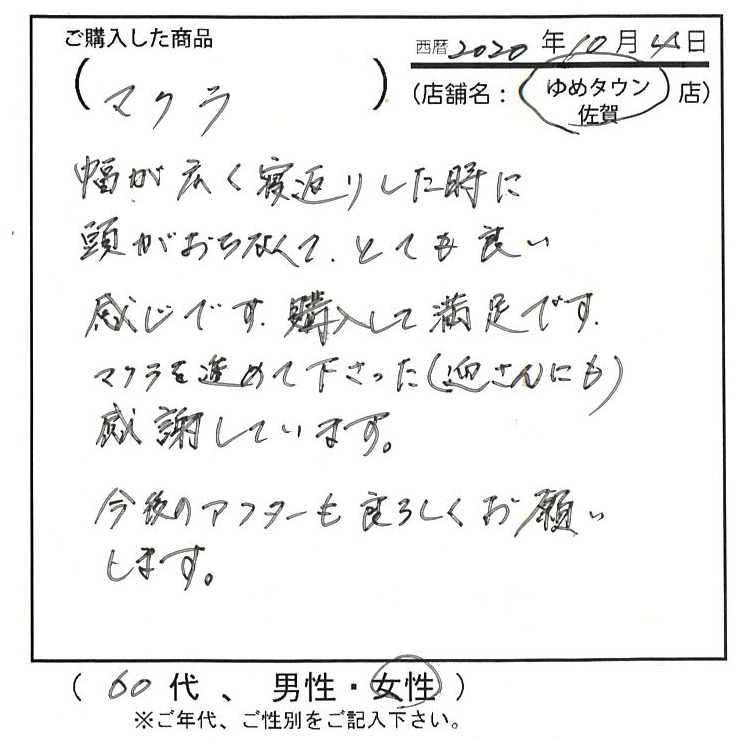 ご購入した商品
西暦 2020 年 10 月 4 日
(マクラ)
(店舗名:ゆめタウン佐賀 店)
幅が広く寝返りした時に
頭がおちなくて、とても良い
感じです。購入して満足です。
マクラを進めて下さった(迎さんにも)
感謝しています。
今後のアフターも良ろしくお願い
します。
(60代、男性・女性)
※ご年代、ご性別をご記入下さい。